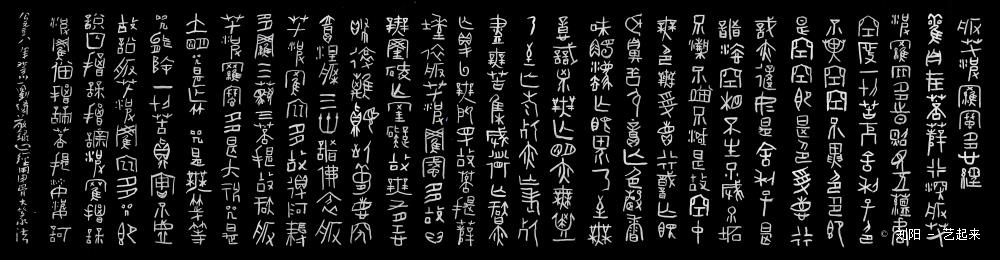 般若波羅蜜多心經
觀自在菩薩行深般若
波羅蜜多時照見五蘊皆
空度一切苦厄舍利子色
不異空空不異色色即
是空空即是色受想行
識亦復如是舍利子是
諸法空相不生不滅不垢
不淨不增不減是故空中
無色無受想行識亡眼
耳鼻舌身意亡色聲香
味觸法亡眼界乃至無
意識界無亡明亦無
乃至亡老死亦亡老死
盡無苦集滅道亡智亦
亡得以無所得故菩提薩
埵依般若波羅蜜多故心
無罣礙亡罣礙故無有恐
怖遠離顛倒夢想究
竟涅槃三世諸佛依般
若波羅蜜多故得阿耨
多羅三藐三菩提故知般
若波羅蜜多是大神咒是
大明咒是無上咒是無等等
咒能除一切苦真實不虛
故說般若波羅蜜多咒即
說曰揭諦揭諦波羅揭諦
波羅僧揭諦菩提薩婆訶
阳 一艺起来